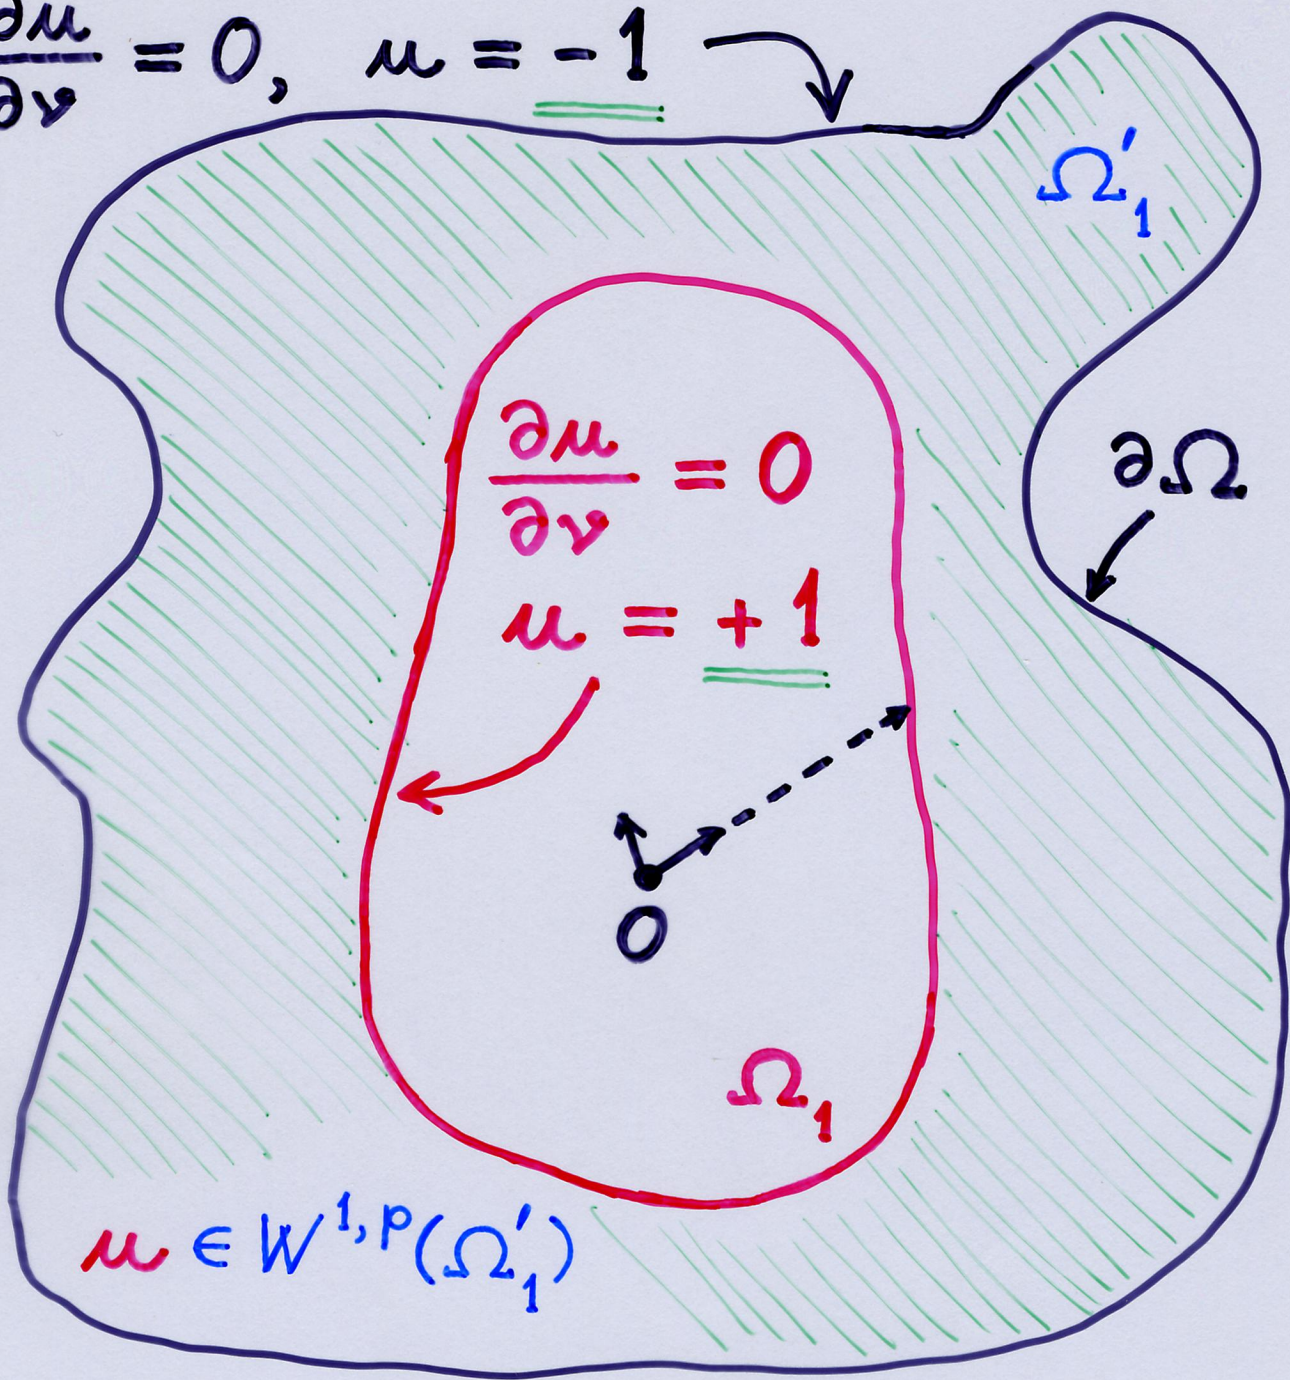 ∂u/∂ν = 0, u = -1
Ω'₁
∂u/∂ν = 0
∂Ω
u = +1
O
Ω₁
u ∈ W^{1,p}(Ω'₁)